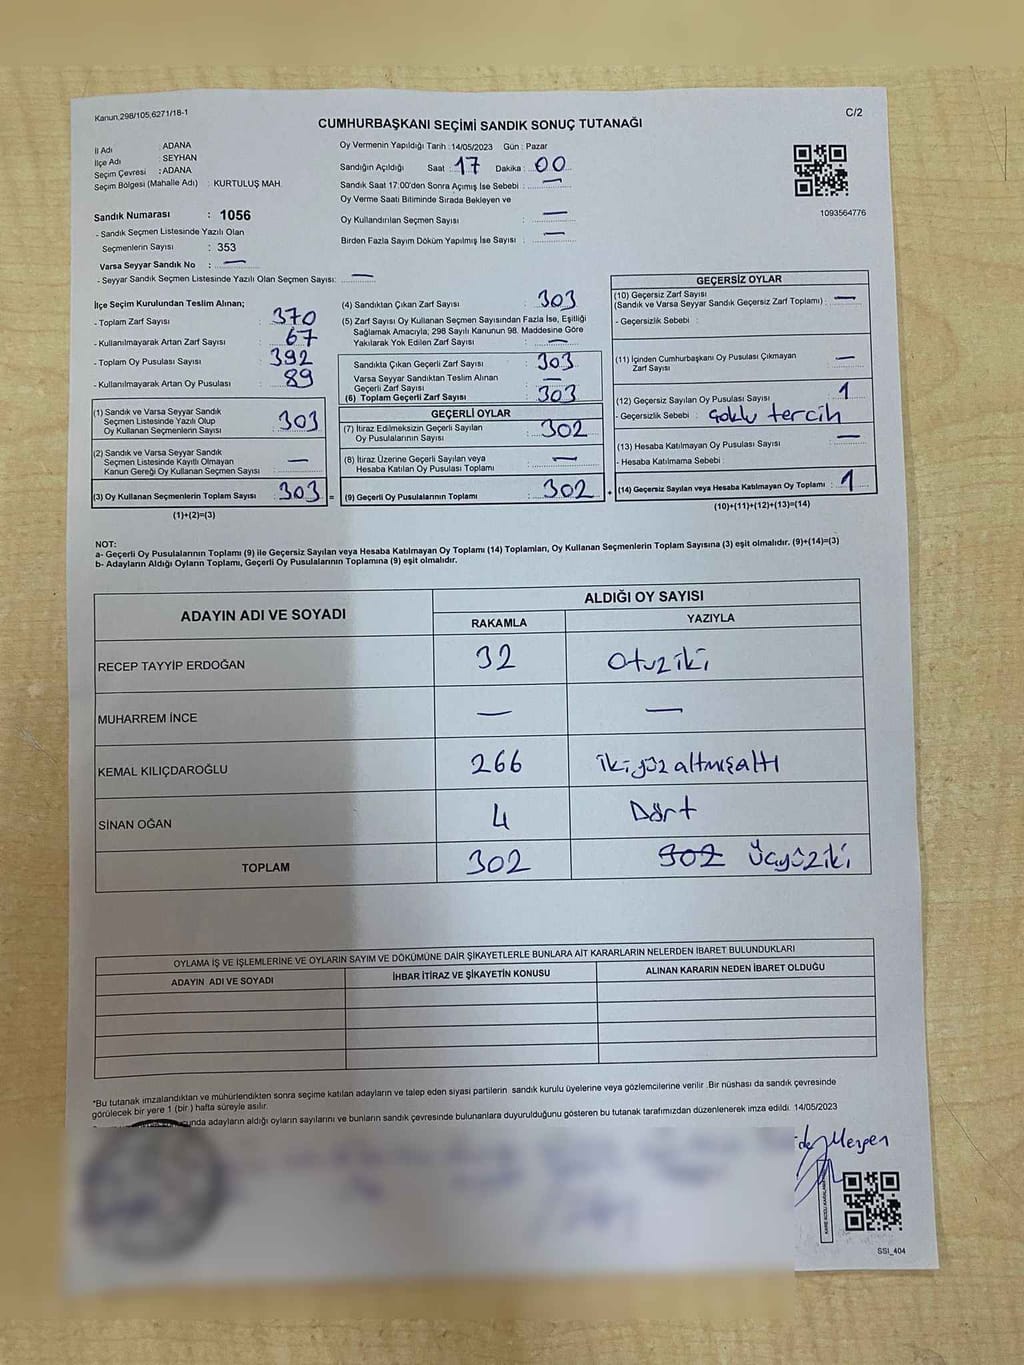 Kanun.298/105.6271/18-1
C/2
CUMHURBAŞKANI SEÇİMİ SANDIK SONUÇ TUTANAĞI
İl Adı : ADANA
İlçe Adı : SEYHAN
Seçim Çevresi : ADANA
Seçim Bölgesi (Mahalle Adı) : KURTULUŞ MAH.
Sandık Numarası : 1056
- Sandık Seçmen Listesinde Yazılı Olan
Seçmenlerin Sayısı : 353
Varsa Seyyar Sandık No : —
- Seyyar Sandık Seçmen Listesinde Yazılı Olan Seçmen Sayısı: —
Oy Vermenin Yapıldığı Tarih : 14/05/2023 Gün : Pazar
Sandığın Açıldığı Saat : 17 Dakika : 00
Sandık Saat 17:00'den Sonra Açımış İse Sebebi : —
Oy Verme Saati Bitiminde Sırada Bekleyen ve
Oy Kullandırılan Seçmen Sayısı : —
Birden Fazla Sayım Döküm Yapılmış İse Sayısı : —
1093564776
İlçe Seçim Kurulundan Teslim Alınan;
- Toplam Zarf Sayısı : 370
- Kullanılmayarak Artan Zarf Sayısı : 67
- Toplam Oy Pusulası Sayısı : 392
- Kullanılmayarak Artan Oy Pusulası : 89
(1) Sandık ve Varsa Seyyar Sandık
Seçmen Listesinde Yazılı Olup
Oy Kullanan Seçmenlerin Sayısı : 303
(2) Sandık ve Varsa Seyyar Sandık
Seçmen Listesinde Kayıtlı Olmayan
Kanun Gereği Oy Kullanan Seçmen Sayısı : —
(3) Oy Kullanan Seçmenlerin Toplam Sayısı : 303 =
(1)+(2)=(3)
(4) Sandıktan Çıkan Zarf Sayısı : 303
(5) Zarf Sayısı Oy Kullanan Seçmen Sayısından Fazla İse, Eşitliği
Sağlamak Amacıyla; 298 Sayılı Kanunun 98. Maddesine Göre
Yakılarak Yok Edilen Zarf Sayısı : —
Sandıkta Çıkan Geçerli Zarf Sayısı : 303
Varsa Seyyar Sandıktan Teslim Alınan
Geçerli Zarf Sayısı : —
(6) Toplam Geçerli Zarf Sayısı : 303
GEÇERLİ OYLAR
(7) İtiraz Edilmeksizin Geçerli Sayılan
Oy Pusulalarının Sayısı : 302
(8) İtiraz Üzerine Geçerli Sayılan veya
Hesaba Katılan Oy Pusulası Toplamı : —
(9) Geçerli Oy Pusulalarının Toplamı : 302 +
GEÇERSİZ OYLAR
(10) Geçersiz Zarf Sayısı
(Sandık ve Varsa Seyyar Sandık Geçersiz Zarf Toplamı) : —
- Geçersizlik Sebebi :
(11) İçinden Cumhurbaşkanı Oy Pusulası Çıkmayan
Zarf Sayısı : —
(12) Geçersiz Sayılan Oy Pusulası Sayısı : 1
- Geçersizlik Sebebi : Çoklu tercih
(13) Hesaba Katılmayan Oy Pusulası Sayısı : —
- Hesaba Katılmama Sebebi :
(14) Geçersiz Sayılan veya Hesaba Katılmayan Oy Toplamı : 1
(10)+(11)+(12)+(13)=(14)
NOT:
a- Geçerli Oy Pusulalarının Toplamı (9) ile Geçersiz Sayılan veya Hesaba Katılmayan Oy Toplamı (14) Toplamları, Oy Kullanan Seçmenlerin Toplam Sayısına (3) eşit olmalıdır. (9)+(14)=(3)
b- Adayların Aldığı Oyların Toplamı, Geçerli Oy Pusulalarının Toplamına (9) eşit olmalıdır.
ADAYIN ADI VE SOYADI ALDIĞI OY SAYISI
RAKAMLA YAZIYLA
RECEP TAYYİP ERDOĞAN 32 Otuziki
MUHARREM İNCE — —
KEMAL KILIÇDAROĞLU 266 İkiyüzaltmışaltı
SİNAN OĞAN 4 Dört
TOPLAM 302 302 Üçyüziki
OYLAMA İŞ VE İŞLEMLERİNE VE OYLARIN SAYIM VE DÖKÜMÜNE DAİR ŞİKAYETLERLE BUNLARA AİT KARARLARIN NELERDEN İBARET BULUNDUKLARI
ADAYIN ADI VE SOYADI İHBAR İTİRAZ VE ŞİKAYETİN KONUSU ALINAN KARARIN NEDEN İBARET OLDUĞU
*Bu tutanak imzalandıktan ve mühürlendikten sonra seçime katılan adayların ve talep eden siyasi partilerin sandık kurulu üyelerine veya gözlemcilerine verilir .Bir nüshası da sandık çevresinde
görülecek bir yere 1 (bir ) hafta süreyle asılır.
adayların aldığı oyların sayılarını ve bunların sandık çevresinde bulunanlara duyurulduğunu gösteren bu tutanak tarafımızdan düzenlenerek imza edildi. 14/05/2023
SSI_404